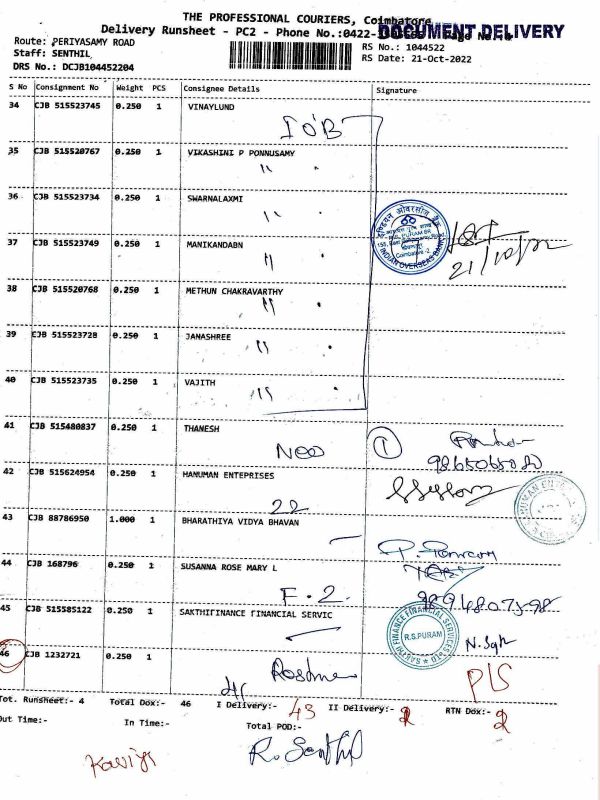 THE PROFESSIONAL COURIERS, Coimbatore
Delivery Runsheet - PC2 - Phone No.:0422-
DOCUMENT DELIVERY
Route: PERIYASAMY ROAD
RS No.: 1044522
Staff: SENTHIL
RS Date: 21-Oct-2022
DRS No.: DCJB104452204
S No Consignment No Weight PCS Consignee Details Signature
34 CJB 515523745 0.250 1 VINAYLUND
IOB
35 CJB 515520767 0.250 1 VIKASHINI P PONNUSAMY
"
36 CJB 515523734 0.250 1 SWARNALAXMI
"
इण्डियन ओवरसीज़ बैंक
Coimbatore-2
INDIAN OVERSEAS BANK
21/10/22
37 CJB 515523749 0.250 1 MANIKANDABN
"
38 CJB 515520768 0.250 1 METHUN CHAKRAVARTHY
"
39 CJB 515523728 0.250 1 JANASHREE
"
40 CJB 515523735 0.250 1 VAJITH
"
41 CJB 515480837 0.250 1 THANESH
Neo 1
42 CJB 515624954 0.250 1 HANUMAN ENTEPRISES
22
43 CJB 88786950 1.000 1 BHARATHIYA VIDYA BHAVAN
44 CJB 168796 0.250 1 SUSANNA ROSE MARY L
F-2
9894807598
45 CJB 515585122 0.250 1 SAKTHIFINANCE FINANCIAL SERVIC
SAKTHI FINANCE FINANCIAL SERVICES
R.S.PURAM
46 CJB 1232721 0.250 1
Tot. Runsheet:- 4 Total Dox:- 46 I Delivery:- 43 II Delivery:- RTN Dox:-
Out Time:- In Time:- Total POD:-
R. Senthil